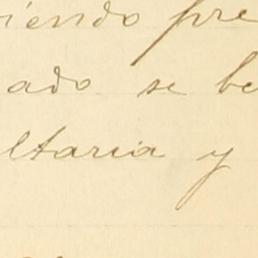 iendo pre
ado se be
ltaria y